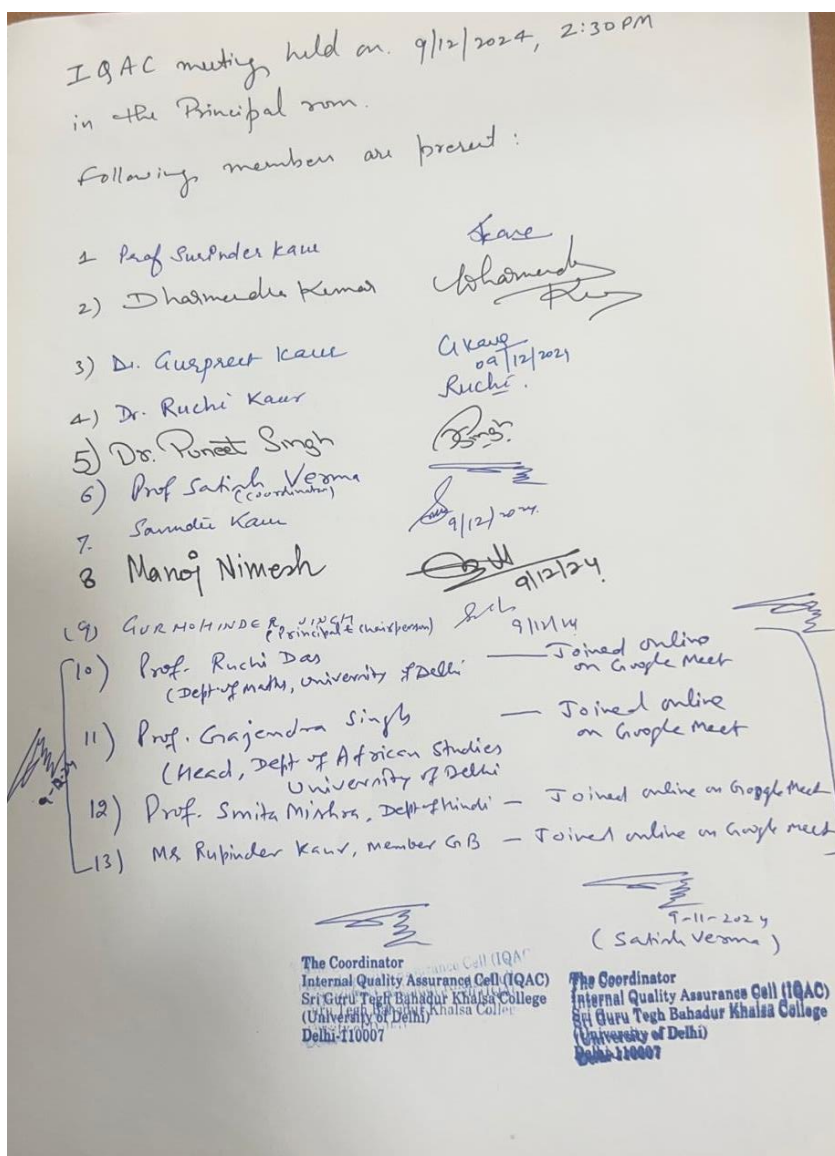 IQAC meeting held on. 9/12/2024, 2:30PM
in the Principal room.
Following members are present :
1 Prof Surinder Kaur Skaur
2) Dharmendra Kumar Dharmendra
3) Dr. Gurpreet Kaur GKaur
09/12/2024
4) Dr. Ruchi Kaur Ruchi.
5) Dr. Puneet Singh Singh
6) Prof Satish Verma
(Coordinator)
7. Kaur 9/12/2024
8 Manoj Nimesh 9/12/24
(9) GURMOHINDER SINGH
(Principal & Chairperson) 9/12/24
10) Prof. Ruchi Das — Joined online
(Dept of Maths, University of Delhi on Google Meet
11) Prof. Gajendra Singh — Joined online
on Google Meet
(Head, Dept of African Studies
University of Delhi
12) Prof. Smita Mishra, Dept of Hindi — Joined online on Google Meet
13) Ms Rupinder Kaur, Member GB — Joined online on Google meet
9-11-2024
(Satish Verma)
The Coordinator
Internal Quality Assurance Cell (IQAC)
Sri Guru Tegh Bahadur Khalsa College
(University of Delhi)
Delhi-110007
The Coordinator
Internal Quality Assurance Cell (IQAC)
Sri Guru Tegh Bahadur Khalsa College
(University of Delhi)
Delhi-110007